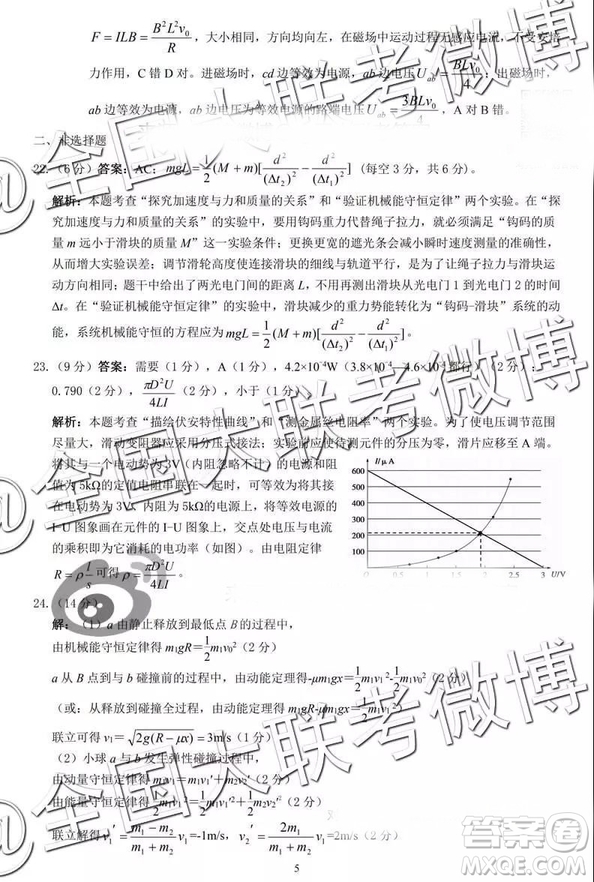 F = ILB = B²L²v₀/R，大小相同，方向均向左，在磁场中运动过程无感应电流，不受安培
力作用，C 错 D 对。进磁场时，cd 边等效为电源，ab 边电压U_ab = BLv₀/4；出磁场时，
ab 边等效为电源，ab 边电压为等效电源的路端电压U_ab = 3BLv₀/4，A 对 B 错。
二、非选择题
22.（6分）答案：AC；mgL = 1/2(M + m)[d²/(Δt₂)² − d²/(Δt₁)²]（每空 3 分，共 6 分）。
解析：本题考查“探究加速度与力和质量的关系”和“验证机械能守恒定律”两个实验。在“探
究加速度与力和质量的关系”的实验中，要用钩码重力代替绳子拉力，就应尽量满足“钩码的质
量 m 远小于滑块的质量 M”这一实验条件；更换更宽的遮光条会减小瞬时速度测量的准确性，
从而增大实验误差；调节滑轮高度使连接滑块的细线与轨道平行，是为了让绳子拉力与滑块运
动方向相同；题干中给出了两光电门间的距离 L，不用再测出滑块从光电门 1 到光电门 2 的时间
Δt。在“验证机械能守恒定律”的实验中，滑块减少的重力势能转化为“钩码−滑块”系统的动
能，系统机械能守恒的方程应为mgL = 1/2(M + m)[d²/(Δt₂)² − d²/(Δt₁)²]。
23.（9 分）答案：需要（1 分），A（1 分），4.2×10⁻⁴W（3.8×10⁻⁴ 4.6×10⁻⁴都行）（2 分）；
0.790（2 分），πD²U/4LI（2 分），小于（1 分）
解析：本题考查“描绘伏安特性曲线”和“测金属丝电阻率”两个实验。为了使电压调节范围
尽量大，滑动变阻器应采用分压式接法；实验前应使待测元件的分压为零，滑片应移至 A 端。
将其与一个电动势为 3V（内阻忽略不计）的电源和阻
值为 5kΩ的定值电阻串联在一起，可等效为将其接在
电动势为 3V、内阻为 5kΩ的电源上，将等效电源的
I−U 图象画在元件的 I−U 图象上，交点处电压与电流
的乘积即为它消耗的电功率（如图）。由电阻定律
R = ρ l/s 可得 ρ = πD²U/4LI。
I/μA
600
500
400
300
200
100
0
2
2.5
3
U/V
24.（14 分）
解：（1）a 由静止释放到最低点 B 的过程中，
由机械能守恒定律得 m₁gR=1/2m₁v₀²（2 分）
a 从 B 点到与 b 碰撞前的过程中，由动能定理得-μm₁gx=1/2m₁v₁²-1/2m₁v₀²（2 分）
（或：从释放到碰撞全过程，由动能定理得 m₁gR-μm₁gx=1/2m₁v₁²
联立可得 v₁=√2g(R − μx)=3m/s（1 分）
（2）小球 a 与 b 发生弹性碰撞过程中，
由动量守恒定律得 m₁v₁=m₁v₁′+m₂v₂′（2 分）
由能量守恒定律得1/2m₁v₁²=1/2m₁v₁′²+1/2m₂v₂′²（2 分）
联立解得v₁′ = (m₁ − m₂)/(m₁ + m₂)v₁=-1m/s，v₂′ = 2m₁/(m₁ + m₂)v₁=2m/s（2 分）
5
@全国大联考微博
@全国大联考微博
@全国大联考微博
答案圈
MXQE.COM